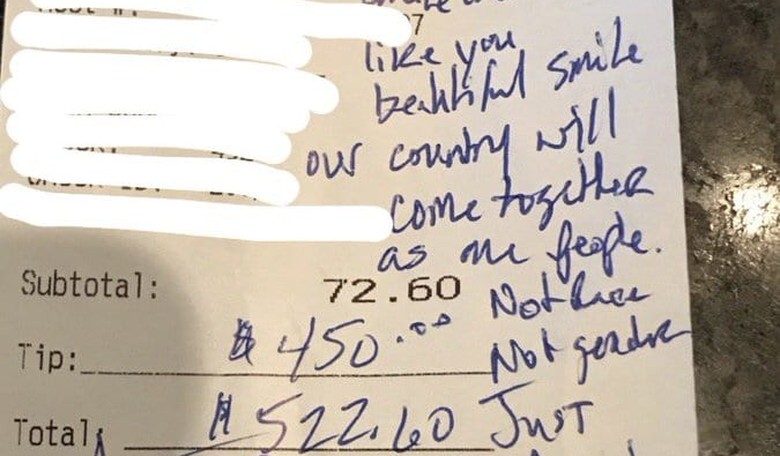 like you
beautiful smile
our country will
come together
as one people.
Subtotal: 72.60
Not Race
Tip: $450.00
Not gender
Total: $522.60
Just